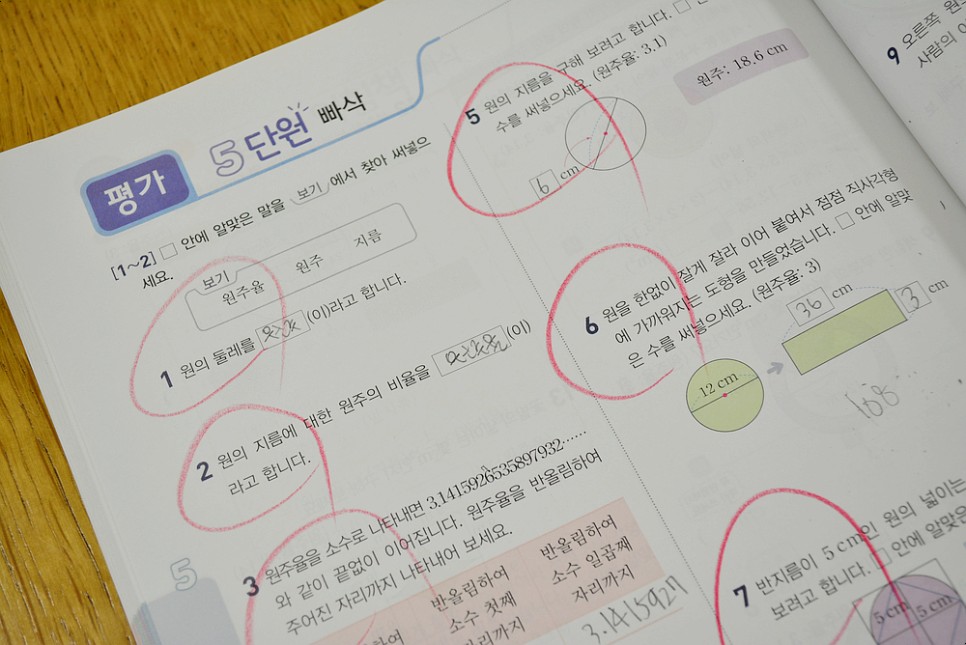 평가
5단원 빠삭
[1~2] □ 안에 알맞은 말을 보기 에서 찾아 써넣으
세요.
보기
원주율 원주 지름
1 원의 둘레를 원주 (이)라고 합니다.
2 원의 지름에 대한 원주의 비율을 원주율 (이)
라고 합니다.
3 원주율을 소수로 나타내면 3.1415926535897932······
와 같이 끝없이 이어집니다. 원주율을 반올림하여
주어진 자리까지 나타내어 보세요.
반올림하여
소수 첫째
자리까지
반올림하여
소수 일곱째
자리까지
3.1415927
5
5 원의 지름을 구해 보려고 합니다. □
수를 써넣으세요. (원주율: 3.1)
원주: 18.6 cm
6 cm
6 원을 한없이 잘게 잘라 이어 붙여서 점점 직사각형
에 가까워지는 도형을 만들었습니다. □ 안에 알맞
은 수를 써넣으세요. (원주율: 3)
36 cm
3 cm
12 cm
108
7 반지름이 5 cm인 원의 넓이는
보려고 합니다. □ 안에 알맞은
5 cm 5 cm
9 오른쪽 원
사람의 이